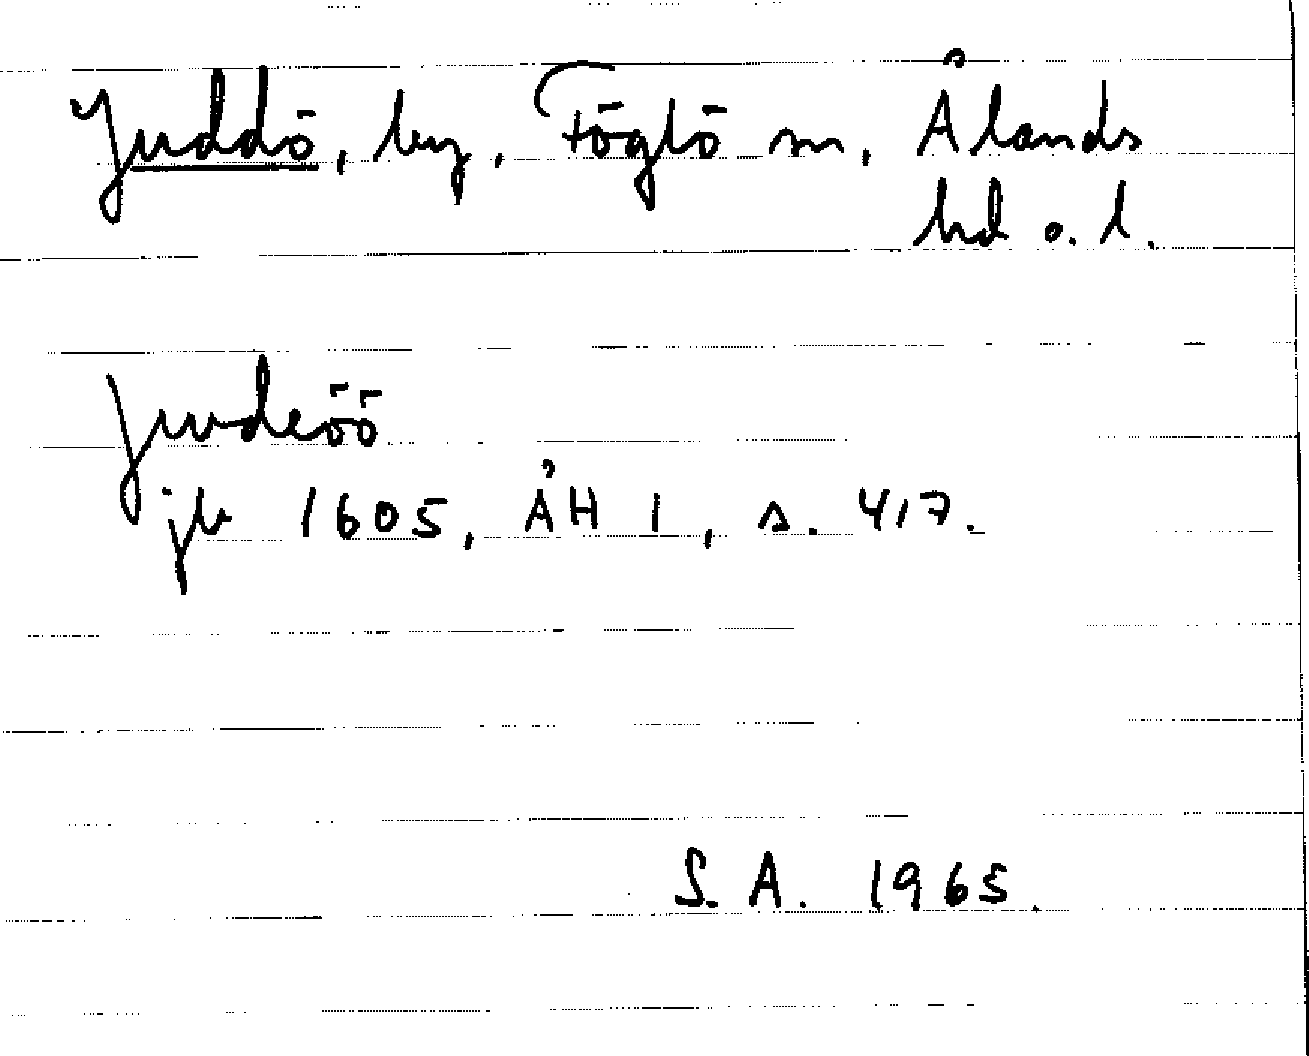 Juddö, by, Föglö sn, Ålands
hd o. l.
Judeöö
jb 1605, ÅH I, s. 417.
S. A. 1965.